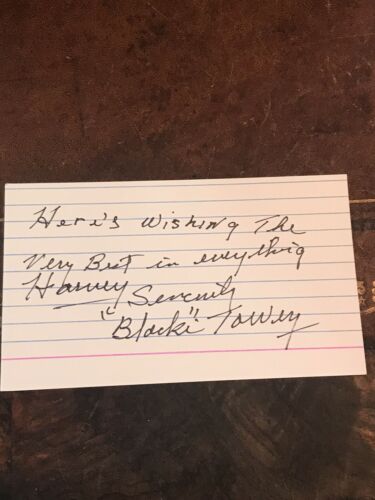 Here's Wishing The
Very Best in everythig
Harvey
Sincerely
"Blacki" Towery